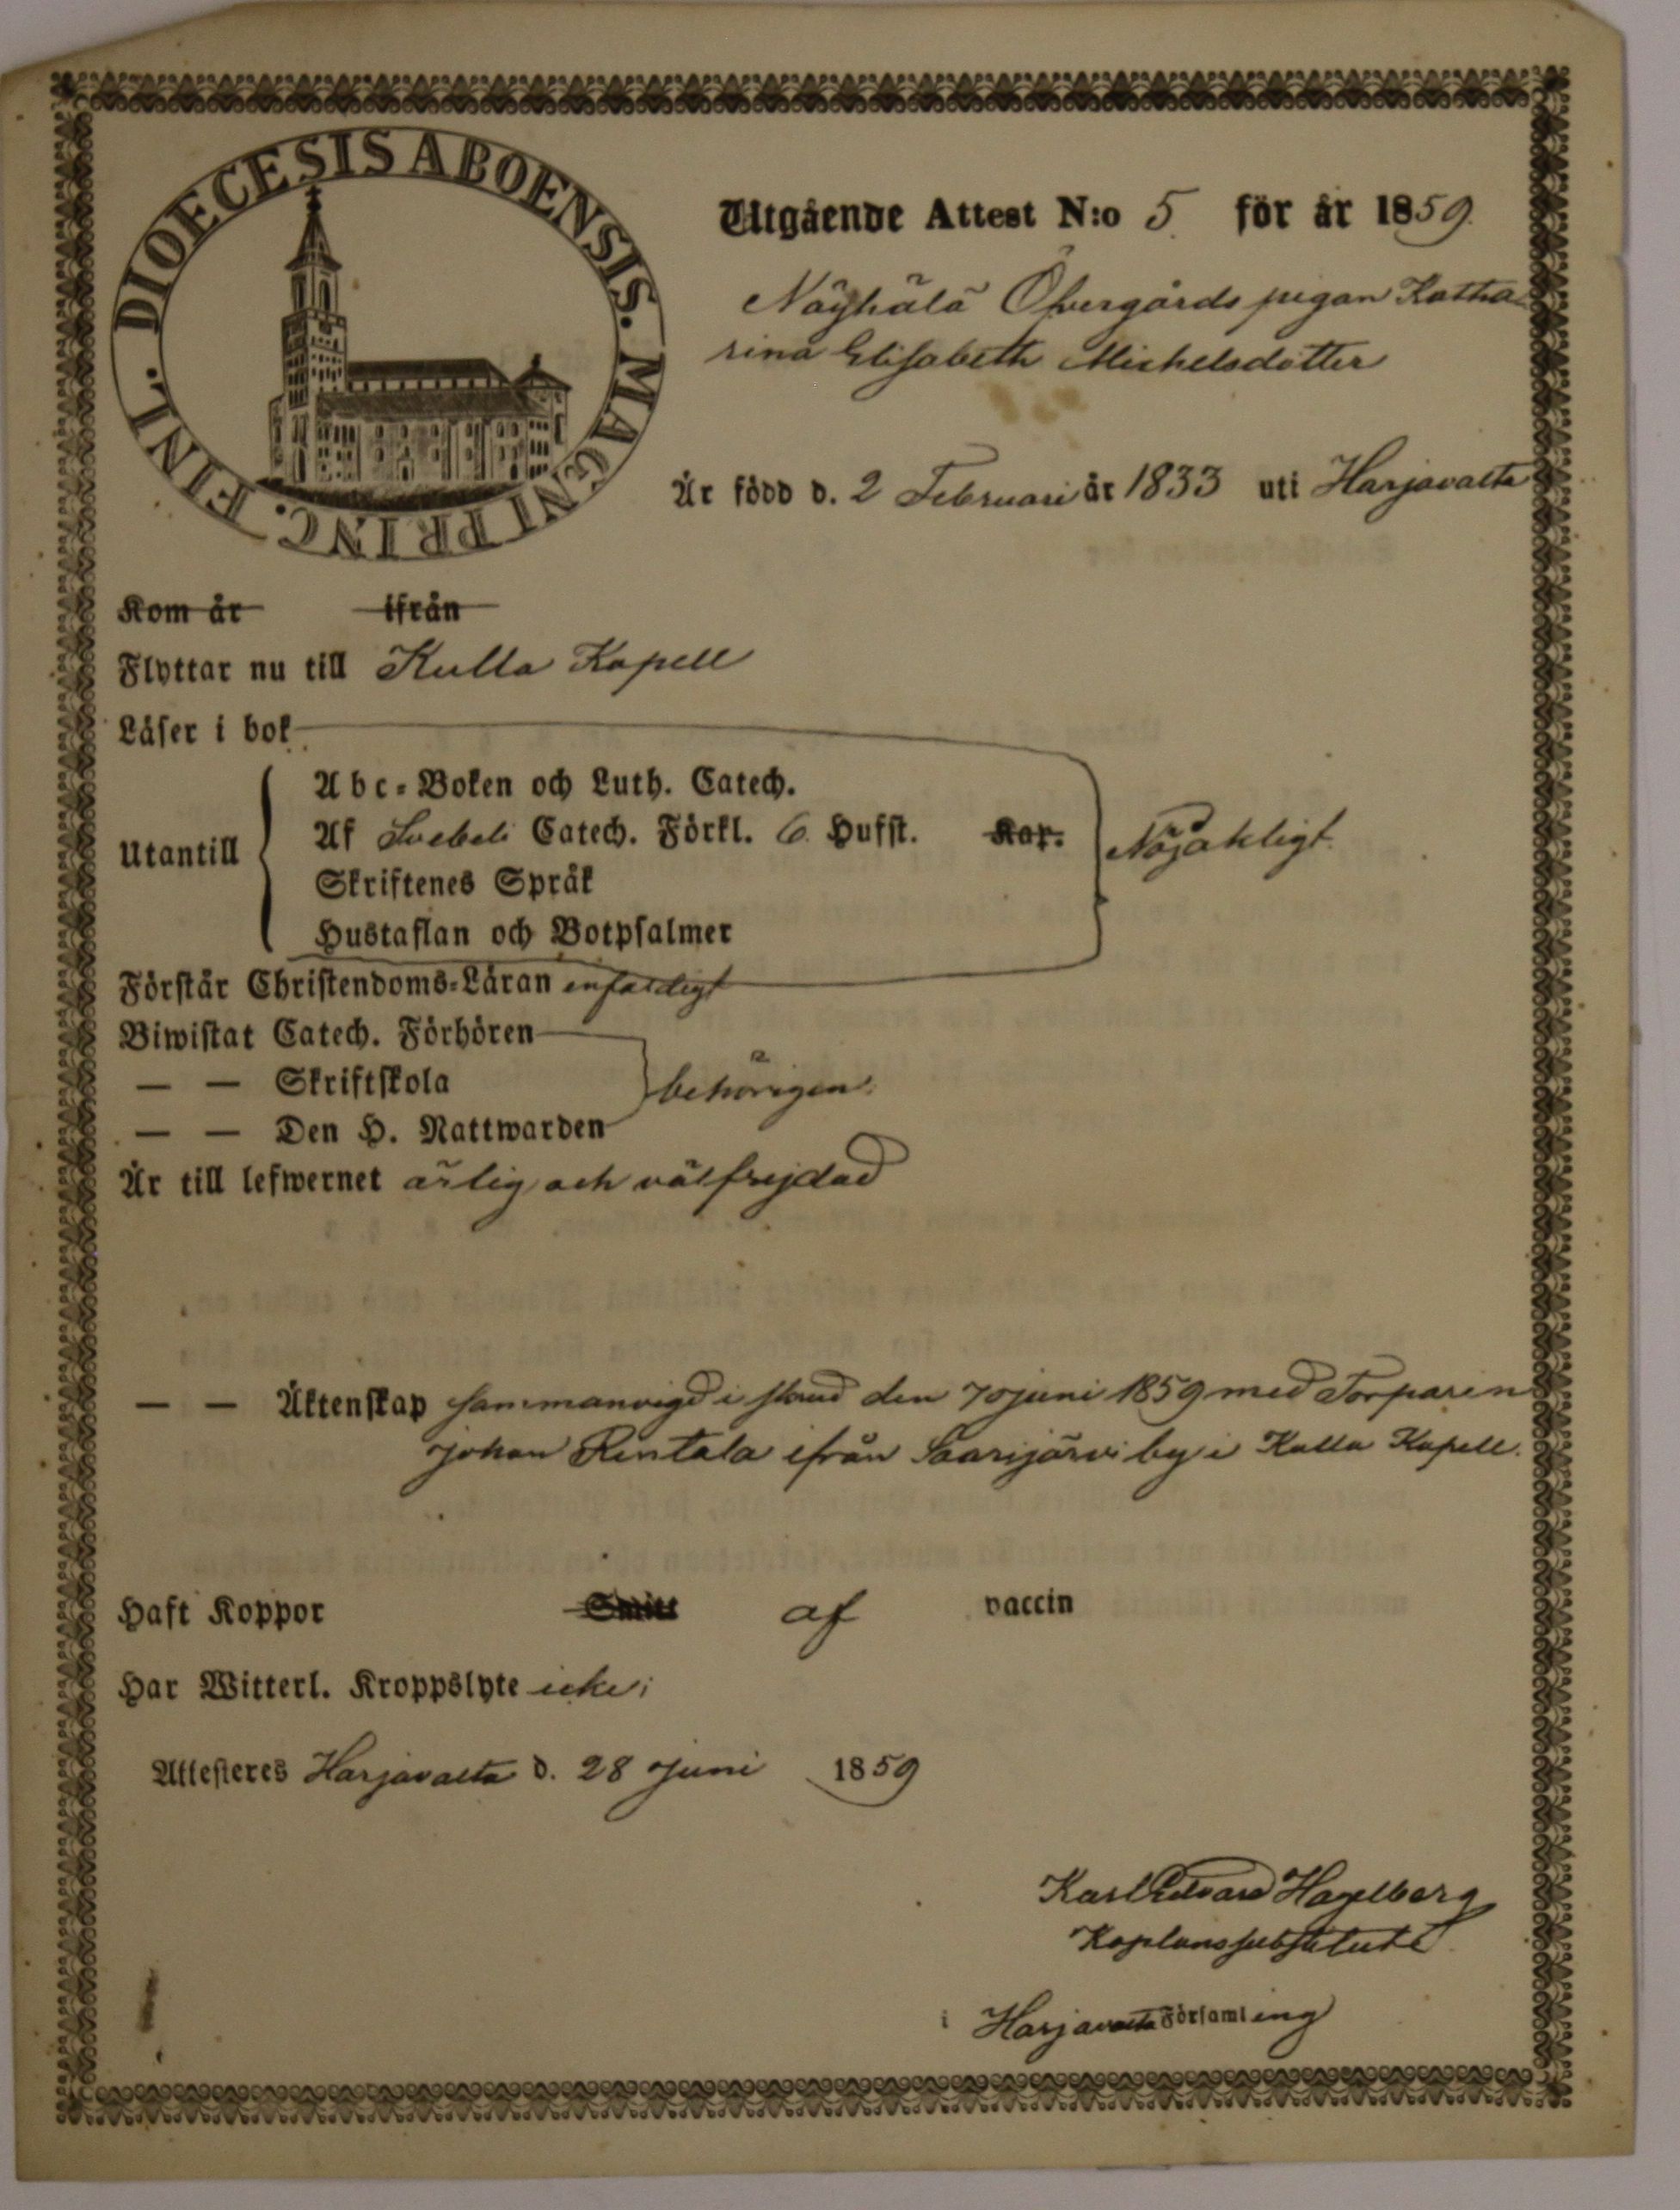 DIOECESIS ABOENSIS. MAGNI PRINC. FINL.
Utgående Attest N:o 5. för år 1859.
Näyhälä Öfvergårds pigan Katha
rina Elisabeth Michelsdotter
Är född d. 2 Februari år 1833 uti Harjavalta
Kom år ifrån
Flyttar nu till Kulla Kapell
Läser i bok
Utantill
Abc-Boken och Luth. Catech.
Af Svebeli Catech. Förkl. 6. Hufst. Kap.
Skriftenes Språk
Hustaflan och Botpsalmer
Nöjaktligt.
Förstår Christendoms-Läran enfaldigt
Biwistat Catech. Förhören
— — Skriftskola
— — Den H. Nattwarden
behörigen.
Är till lefwernet ärlig och välfrejdad
— — Äktenskap sammanvigd i den juni 1859 med Torparen
Johan Rentala ifrån Saarijärvi by i Kulla Kapell.
Haft Koppor Smitt af vaccin
Har Witterl. Kroppslyte icke;
Attesteres Harjavalta d. 28 Juni 1859
Karl Edvard Hagelberg
Kaplanssubstitut
i Harjavalta Församling